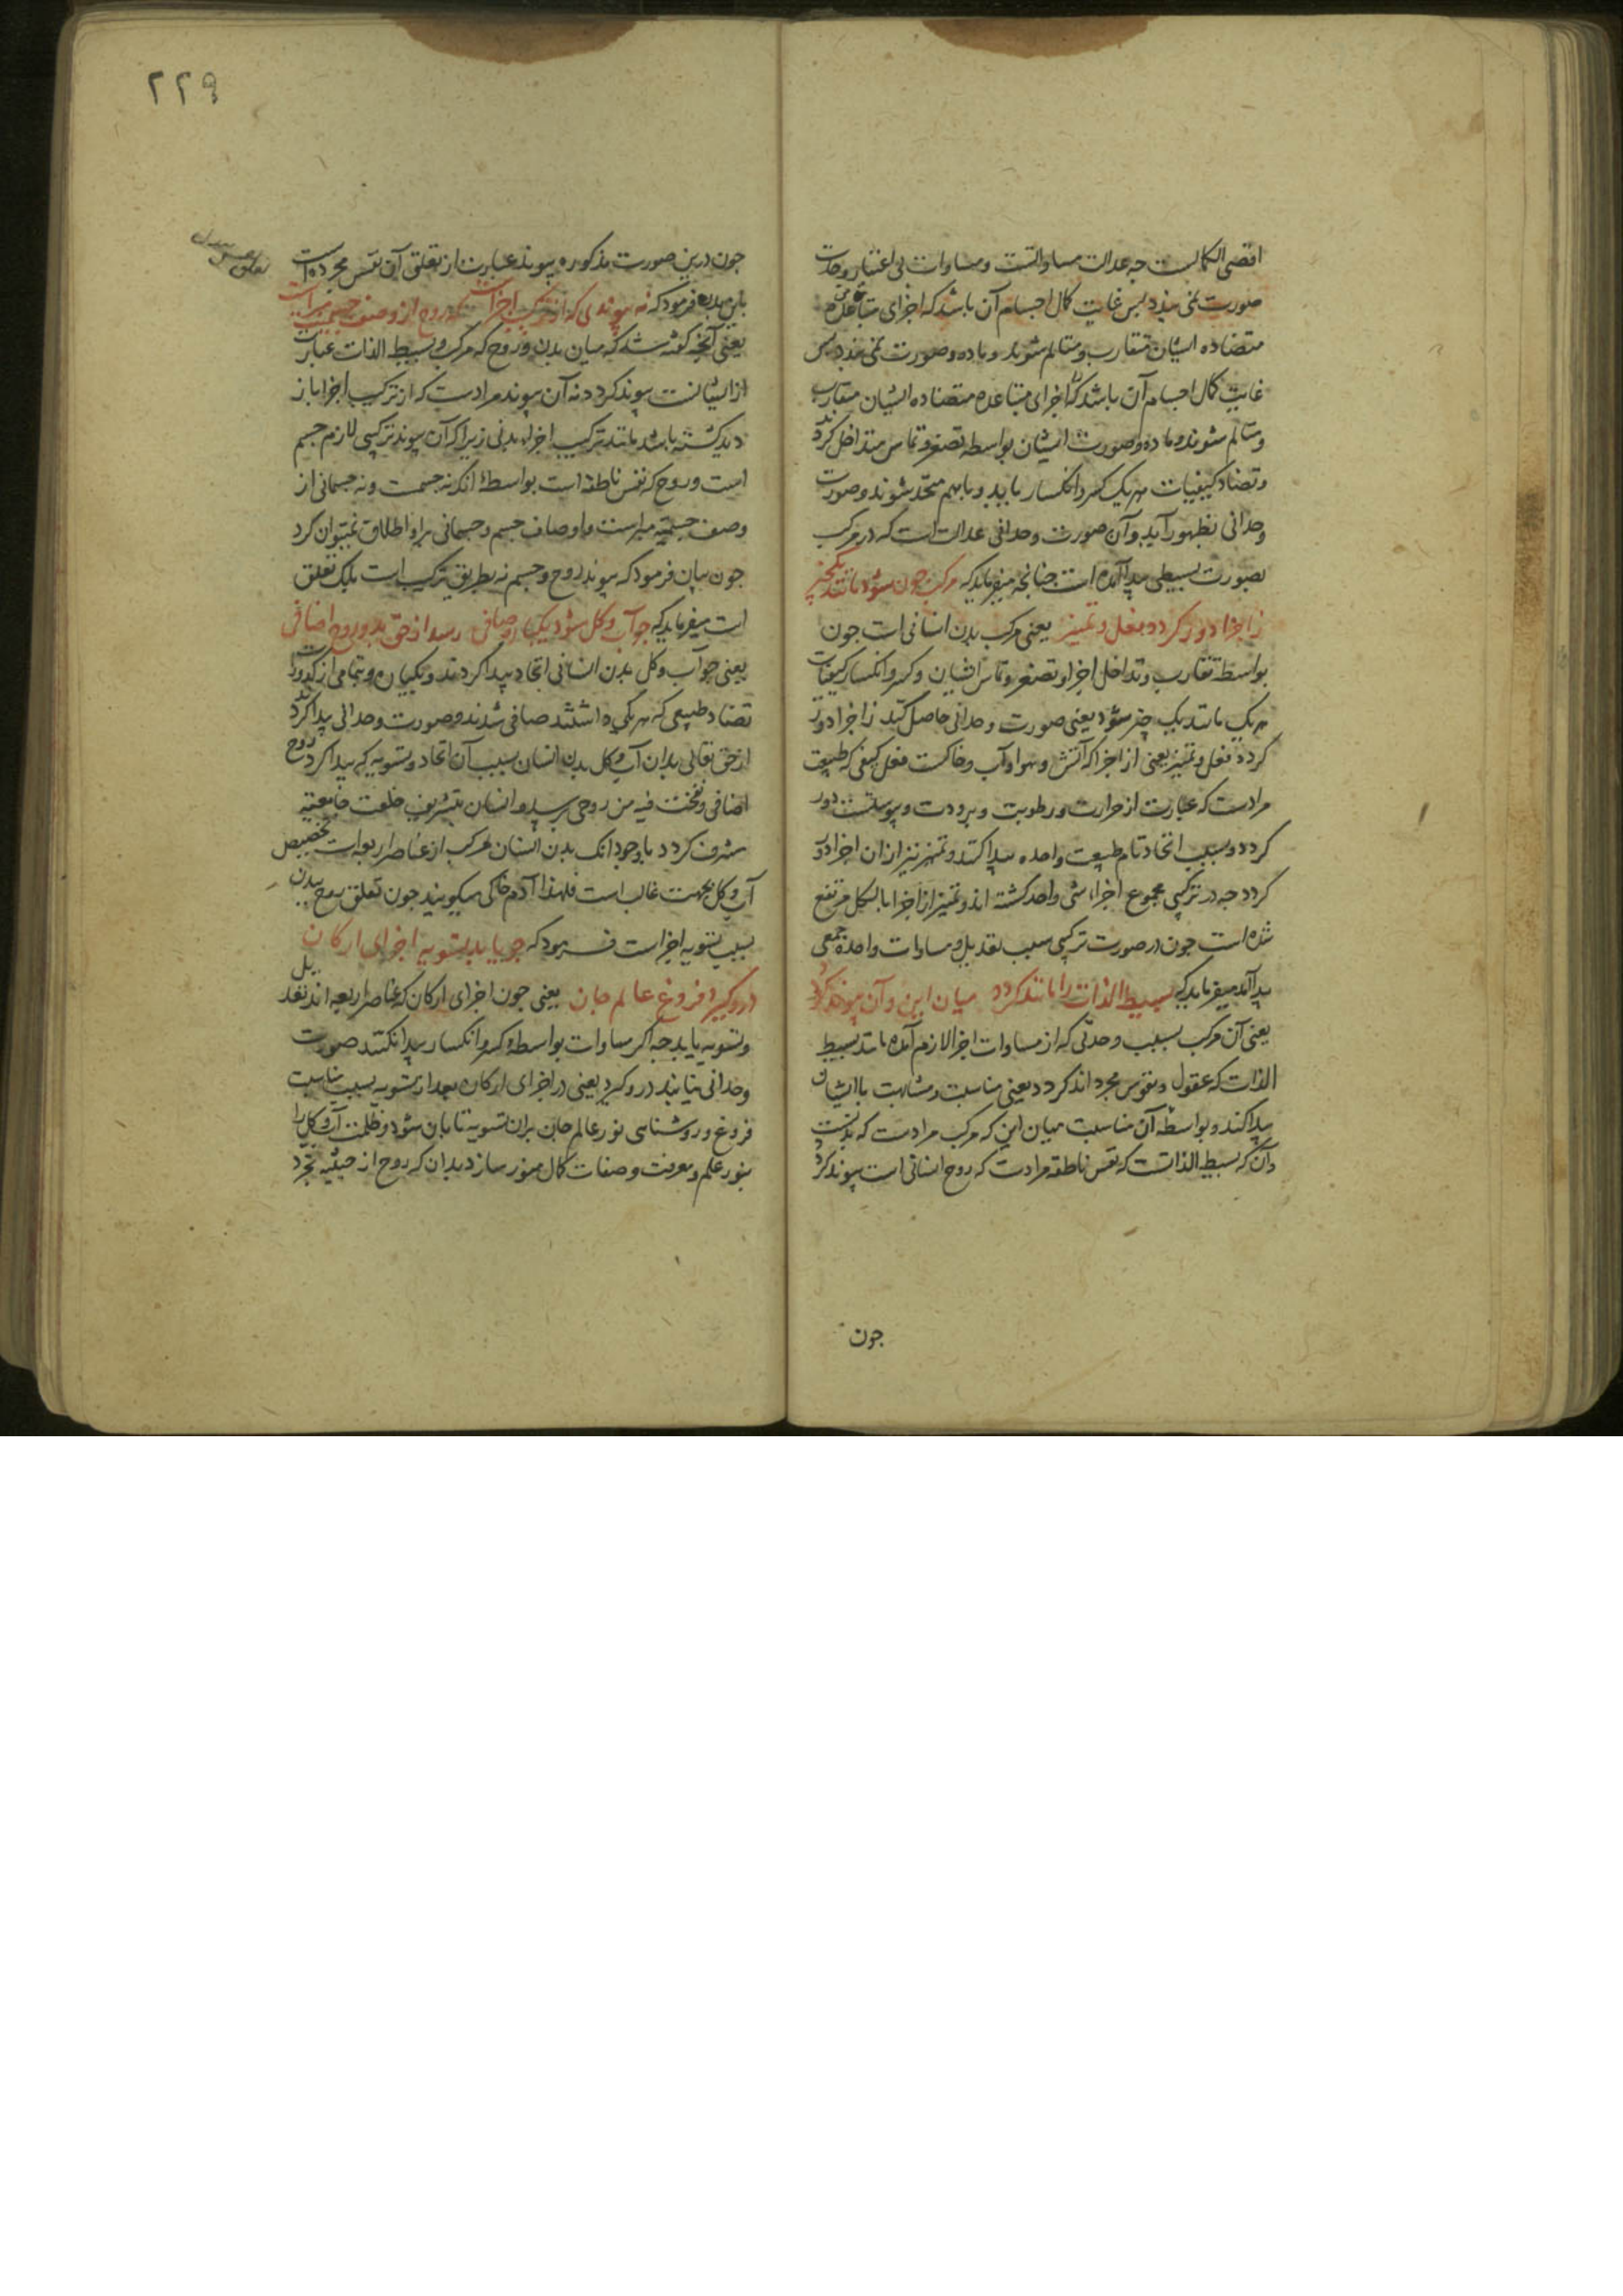 اقصی الکمالست چه عدالت مساواتست و مساوات بی اعتبار وحدت
صورت نمی بندد پس غایت کمال اجسام آن باشد که اجزای متباعده
متضاده ایشان متقارب و متسالم شوند و ماده و صورت نمی بندد پس
غایت کمال اجسام آن باشد که اجزای متباعده متضاده ایشان متقارب
و متسالم شوند و ماده و صورت ایشان بواسطه تصغر و تماس متداخل کردند
و تضاد کیفیات هریک کسر و انکسار یابد و باهم متحد شوند و صورت
وحدانی بظهور آید و آن صورت وحدانی عدالت است که در مرکب
بصورت بسیطی پیدا آمده است چنانچه میفرماید که مرکب چون شود مانند یکچیز
ز اجزا دور کردد فعل و تمییز یعنی مرکب بدن انسانی است جون
بواسطه تقارب و تداخل اجزا و تصغر و تماس ایشان و کسر و انکسار کیفیات
هریک مانند یک چیز شود یعنی صورت وحدانی حاصل کند ز اجزا دور
کردد فعل و تمییز یعنی از اجزا که آتش و هوا و آب و خاکست فعل کیفی که طبیعت
مرادست که عبارت از حرارت و رطوبت و برودت و یبوستست دور
کردد و بسبب اتحاد تام طبیعت واحده پیدا کنند و تمییز نیز از ان اجزا دور
کردد چه در ترکیبی مجموع اجزاء شی واحد کشته اند و تمییز از اجزا بالکل مرتفع
شده است جون در صورت ترکیبی سبب تعدیل و مساوات واحدة جمعی
پیدا آمد میفرماید که بسیط الذات را مانند کردد میان این و آن پیوند کردد
یعنی آن مرکب بسبب وحدتی که از مساوات اجزا لازم آمده مانند بسیط
الذات که عقول و نفوس مجرد اند کردد یعنی مناسبت و مشابهت با ایشان
پیدا کند و بواسطه آن مناسبت میان این که مرکب مرادست که بدنست
و آن که بسیط الذاتست که نفس ناطقه مرادست که روح انسانی است پیوند کردد
جون
۲۲۹
جون درین صورت مذکوره پیوند عبارت از تعلق آن نفس مجرده است
باین بدن فرمود که نه پیوندی که از ترکیب اجزاست که روح از وصف جسمیت مبراست
یعنی آنچه کفته شد که میان بدن و روح که مرکب و بسیط الذات عبارت
از ایشانست پیوند کردد نه آن پیوند مرادست که از ترکیب اجزا باز
دید کشته باشد مانند ترکیب اجزاء بدنی زیرا که آن پیوند ترکیبی لازم جسم
است و روح که نفس ناطقه است بواسطه آنکه نه جسمست و نه جسمانی از
وصف جسمیه مبراست و اوصاف جسم و جسمانی برو اطلاق نمیتوان کرد
جون بیان فرمود که پیوند روح و جسم نه بطریق ترکیب است بلکه تعلق
است میفرماید که چو آب و کل شود یکباره صافی رسد از حق بدو روح اضافی
یعنی چو آب و کل بدن انسانی اتحاد پیدا کردند و یکباره و بتمامی از کدورت
تضاد طبیعی که هر یکی داشتند صافی شدند و صورت وحدانی پیدا کردند
از حق تعالی بدان آب و کل بدن انسان بسبب آن اتحاد و تسویه که پیدا کرد روح
اضافی و نفخت فیه من روحی برسد و انسان بتشریف خلعت جامعیه
مشرف کردد با وجود انک بدن انسان مرکب از عناصر اربعه است تخصیص
آب و کل بجهت غالب است فلهذا آدم خاکی میکویند جون تعلق روح ببدن
بسبب تسویه اجزاست فرمود که چو یابد تسویه اجزای ارکان
درو کیرد فروغ عالم جان یعنی جون اجزای ارکان که عناصر اربعه اند تعدیل
و تسویه یابد چه اکر مساوات بواسطه کسر و انکسار پیدا نکنند صورت
وحدانی نیابند درو کیرد یعنی در اجزای ارکان بعد از تسویه بسبب مناسبت
فروغ و روشنائی نور عالم جان بران تسویه تابان شود و ظلمت آب و کل را
بنور علم و معرفت و صفات کمال منور سازد بدان که روح از حیثیه تجرد